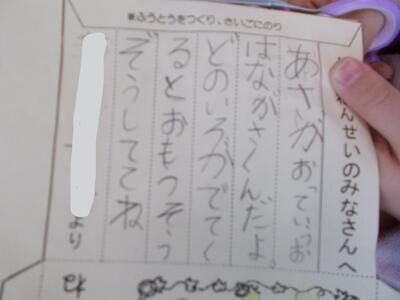 ※ふうとうをつくり、さいごにのり
ねんせいのみなさんへ
あさがおっていうお
はながさくんだよ。
どのいろがでてく
るとおもうそう
ぞうしててね
より